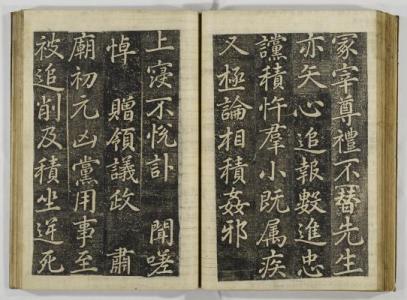 冢宰尊禮不替先生
亦矢心追報數進忠
讜積忤羣小既属疾
又極論相積姦邪
上寖不悅訃　聞嗟
悼　贈領議政　肅
廟初元凶黨用事至
被追削及積坐逆死